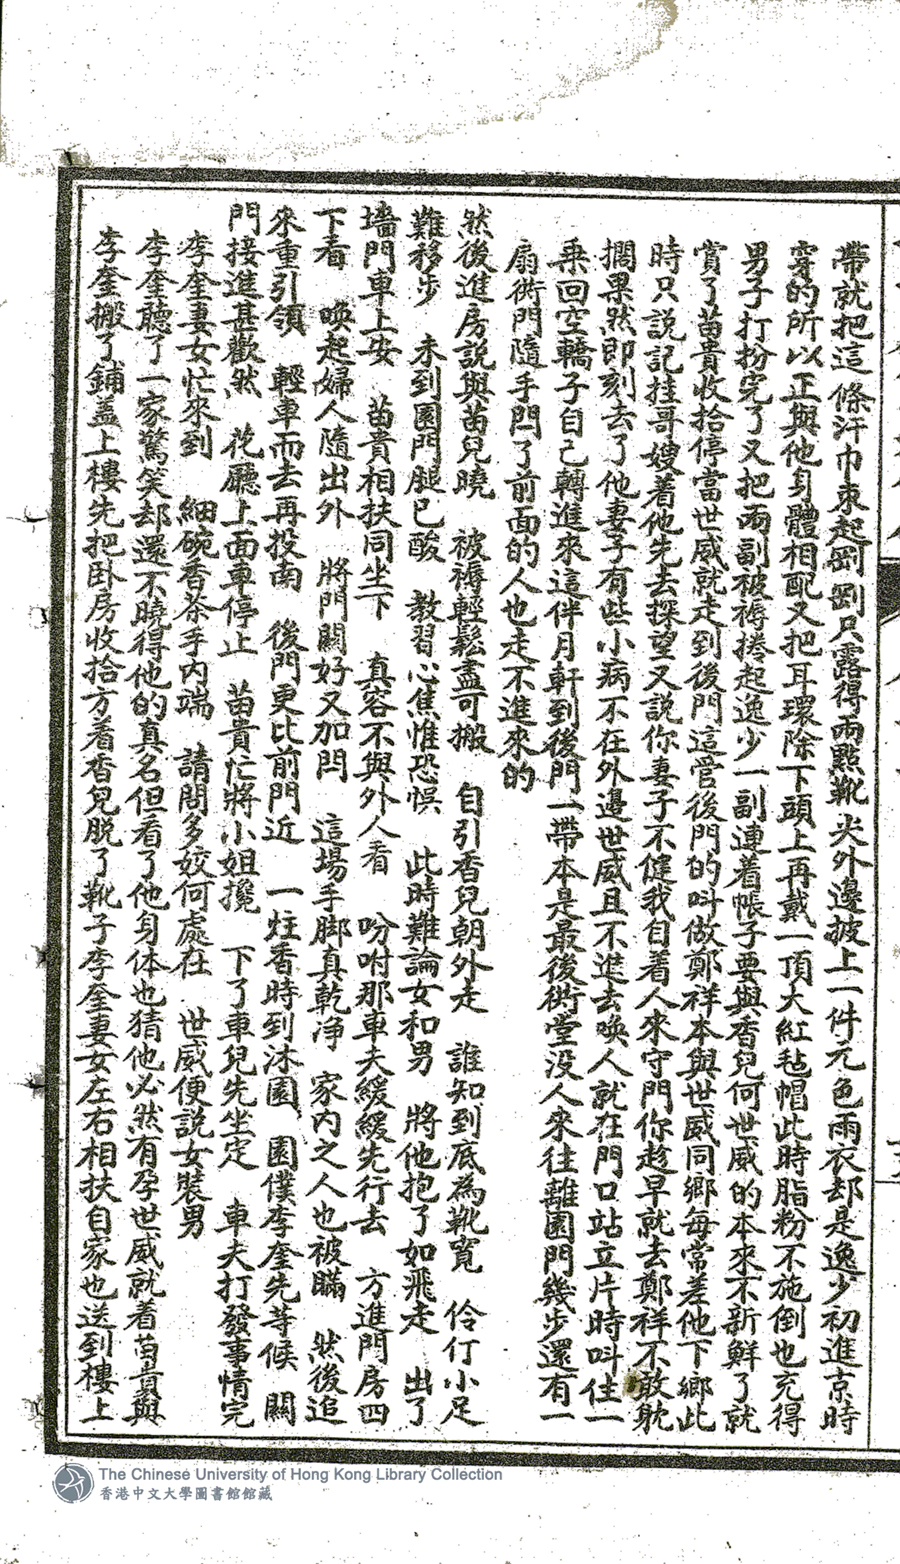 帶就把這條汗巾束起剛剛只露得兩點靴尖外邊披上一件元色雨衣却是逸少初進京時
穿的所以正與他身體相配又把耳環除下頭上再戴一頂大紅毡帽此時脂粉不施倒也充得
男子打扮完了又把兩副被褥捲起逸少一副連着帳子要與香兒何世威的本來不新鮮了就
賞了苗貴收拾停當世威就走到後門這管後門的呌做鄭祥本與世威同鄉每常差他下鄉此
時只說記挂哥嫂着他先去探望又説你妻子不健我自着人來守門你趁早就去鄭祥不敢躭
擱果然即刻去了他妻子有些小病不在外邊世威且不進去喚人就在門口站立片時呌住一
乘回空轎子自己轉進來這伴月軒到後門一帶本是最後衖堂没人來往離園門幾步還有一
扇衖門隨手閂了前面的人也走不進來的
然後進房説與苗兒曉　被褥輕鬆盡可搬　自引香兒朝外走　誰知到底為靴寬　伶仃小足
難移步　未到園門腿已酸　教習心焦惟恐悞　此時難論女和男　將他抱了如飛走　出了
墻門車上安　苗貴相扶同坐下　真容不與外人看　吩咐那車夫緩緩先行去　方進門房四
下看　喚起婦人隨出外　將門關好又加閂　這場手脚真乾淨　家内之人也被瞞　然後追
來重引領　輕車而去再投南　後門更比前門近　一炷香時到沐園　園僕李奎先等候　關
門接進甚歡然　花廳上面車停止　苗貴忙將小姐攙　下了車兒先坐定　車夫打發事情完
李奎妻女忙來到　細碗香茶手内端　請問多姣何處在　世威便説女裝男
李奎聽了一家驚笑却還不曉得他的真名但看了他身体也猜他必然有孕世威就着苗貴與
李奎搬了鋪盖上樓先把卧房收拾方着香兒脱了靴子李奎妻女左右相扶自家也送到樓上
The Chinese University of Hong Kong Library Collection
香港中文大學圖書館館藏